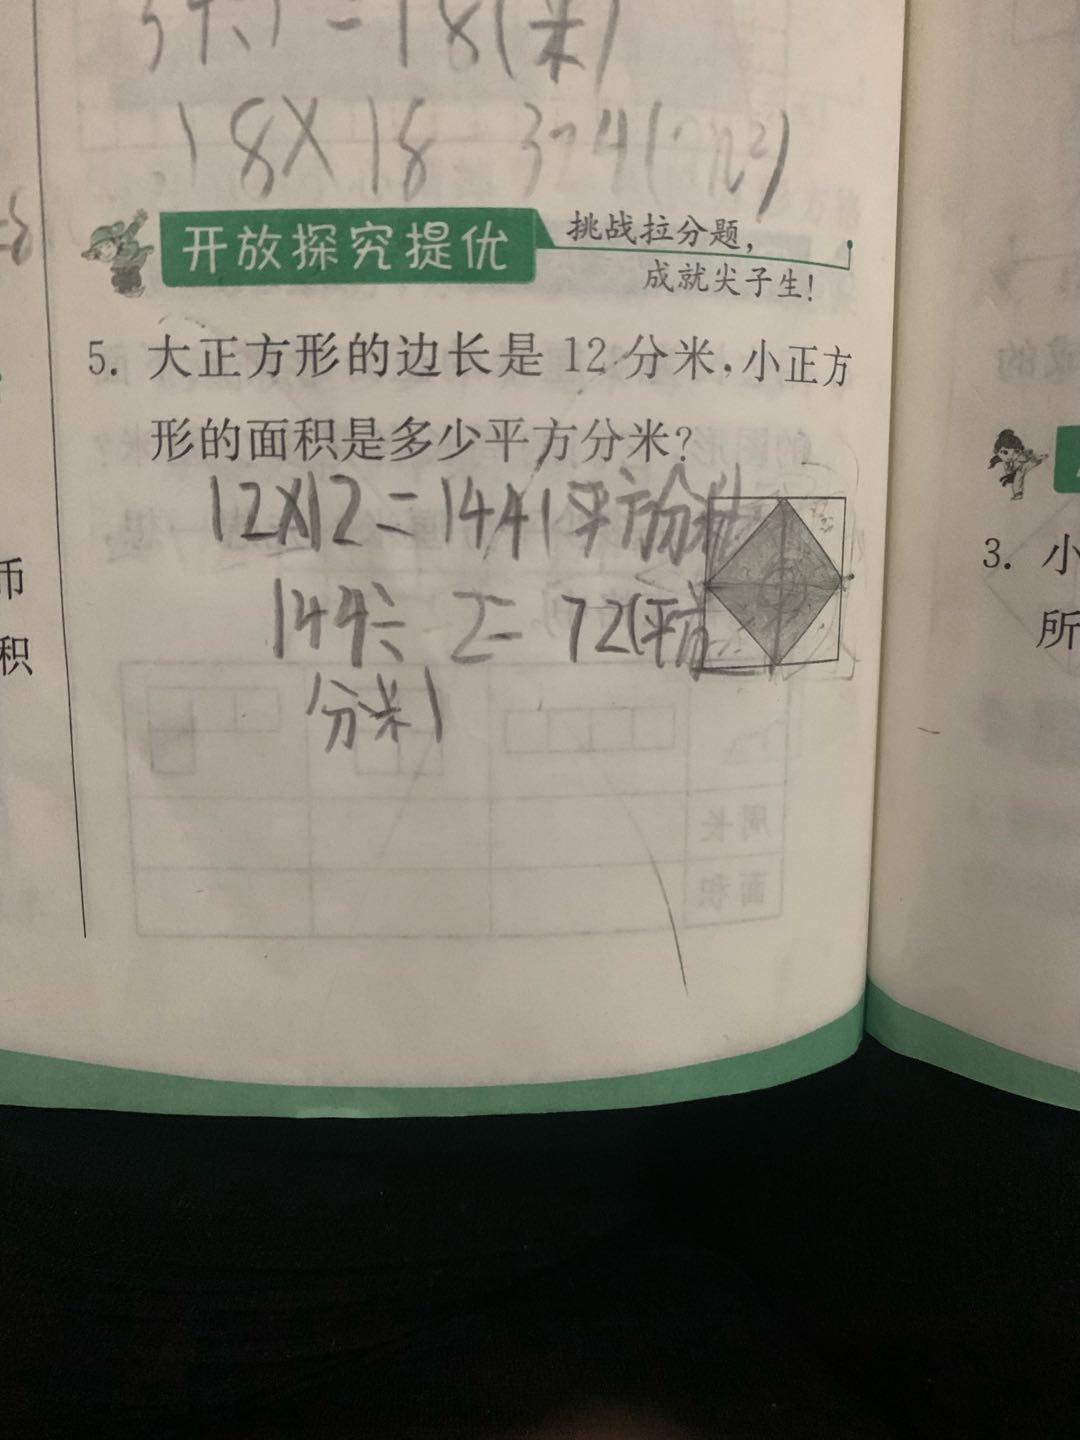 =18(米)
18×18 324(m²)
开放探究提优 挑战拉分题,
成就尖子生!
5. 大正方形的边长是 12 分米,小正方
形的面积是多少平方分米?
12×12=144(平方分米
144÷2=72(平方
分米)
周长
面积
币
积
3. 小
所